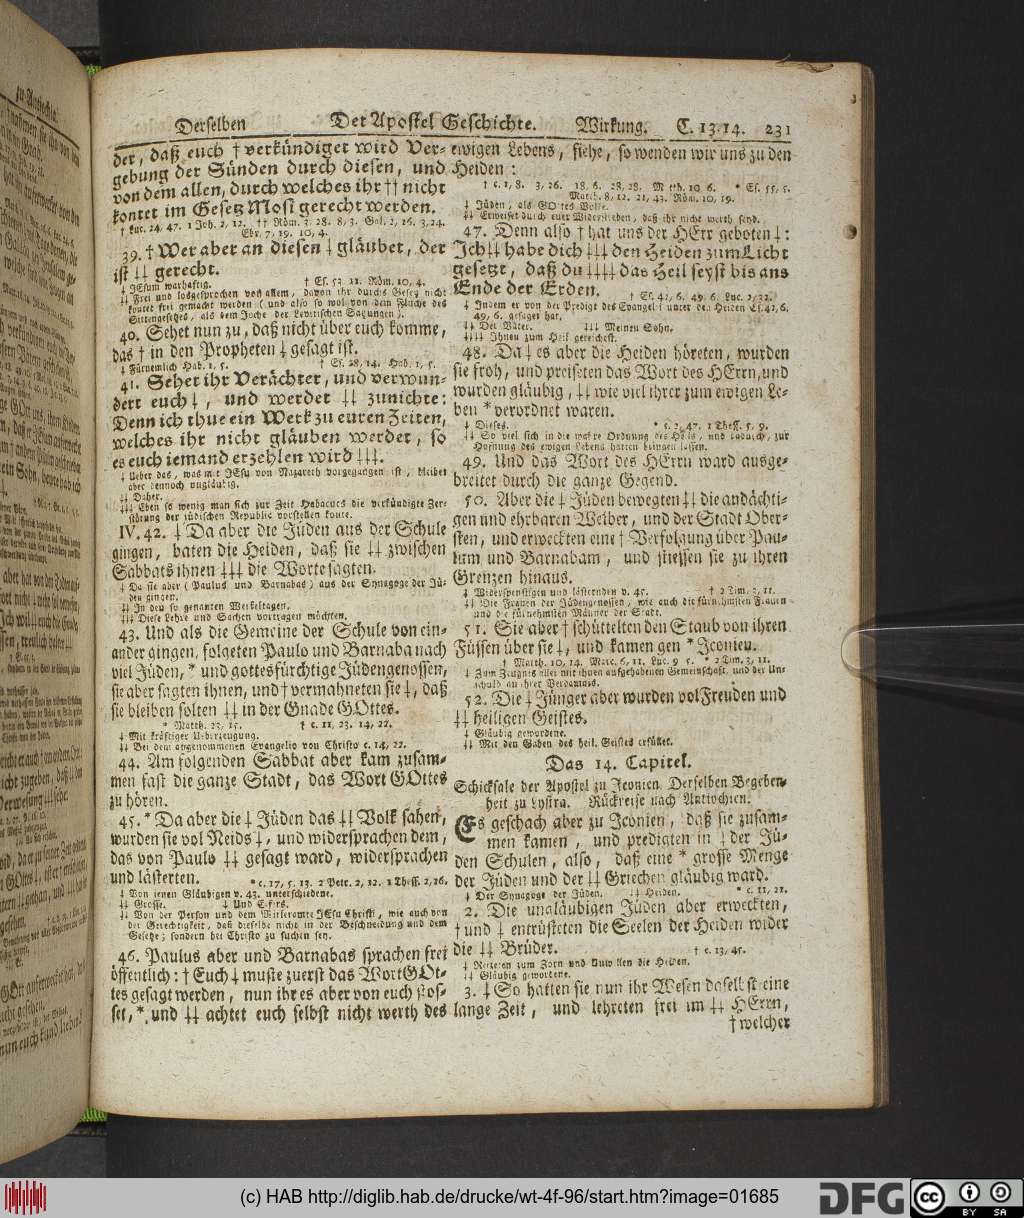 Derselben Der Apostel Geschichte. Wirkung. C. 13. 14. 231
der, daß euch † verkündiget wird Ver-
gebung der Sünden durch diesen, und
von dem allen, durch welches ihr †† nicht
kontet im Gesetz Mosi gerecht werden.
† Luc. 24, 47. 1 Joh. 2, 12. †† Röm. 3, 28. 8, 3. Gal. 2, 16. 3, 24.
Ebr. 7, 19. 10, 4.
39. † Wer aber an diesen ⸸ gläubet, der
ist ⸸⸸ gerecht.
⸸ JEsum warhaftig. † Es. 53, 11. Röm. 10, 4.
⸸⸸ Frei und losgesprochen von allem, davon ihr durchs Gesetz nicht
kontet frei gemacht werden (und also so wol von dem Fluche des
Sittengesetzes, als dem Joche der Levitischen Satzungen).
40. Sehet nun zu, daß nicht über euch komme,
das † in den Propheten ⸸ gesagt ist.
⸸ Fürnemlich Hab. 1, 5. † Es. 28, 14. Hab. 1, 5.
41. Sehet ihr Verächter, und verwun-
dert euch ⸸, und werdet ⸸⸸ zunichte:
Denn ich thue ein Werk zu euren Zeiten,
welches ihr nicht gläuben werdet, so
es euch iemand erzehlen wird ⸸⸸⸸.
⸸ Ueber das, was mit JEsu von Nazareth vorgegangen ist, bleibet
aber dennoch ungläubig.
⸸⸸ Daher.
⸸⸸⸸ Eben so wenig man sich zur Zeit Habacucs die verkündigte Zer-
störung der jüdischen Republic vorstellen konte.
IV. 42. ⸸ Da aber die Jüden aus der Schule
gingen, baten die Heiden, daß sie ⸸⸸ zwischen
Sabbats ihnen ⸸⸸⸸ die Worte sagten.
⸸ Da sie aber (Paulus und Barnabas) aus der Synagoge der Jü-
den gingen.
⸸⸸ In den so genanten Werkeltagen.
⸸⸸⸸ Diese Lehre und Sachen vortragen möchten.
43. Und als die Gemeine der Schule von ein-
ander gingen, folgeten Paulo und Barnaba nach
viel Jüden, * und gottesfürchtige Jüdengenossen,
sie aber sagten ihnen, und † vermahneten sie ⸸, daß
sie bleiben solten ⸸⸸ in der Gnade GOttes.
* Matth. 23, 15. † c. 11, 23. 14, 22.
⸸ Mit kräftiger Ueberzeugung.
⸸⸸ Bei dem angenommenen Evangelio von Christo c. 14, 22.
44. Am folgenden Sabbat aber kam zusam-
men fast die ganze Stadt, das Wort GOttes
zu hören.
45. * Da aber die ⸸ Jüden das ⸸⸸ Volk sahen,
wurden sie vol Neids ⸸, und widersprachen dem,
das von Paulo ⸸⸸ gesagt ward, widersprachen
und lästerten. * c. 17, 5. 13. 2 Petr. 2, 12. 1 Thess. 2, 16.
⸸ Von jenen Gläubigen v. 43. unterschiedene.
⸸⸸ Grosse. ⸸ Und Eifers.
⸸⸸ Von der Person und dem Mitleramte JEsu Christi, wie auch von
der Gerechtigkeit, daß dieselbe nicht in der Beschneidung und dem
Gesetze; sondern bei Christo zu suchen sey.
46. Paulus aber und Barnabas sprachen frei
öffentlich: † Euch ⸸ muste zuerst das Wort GOt-
tes gesagt werden, nun ihr es aber von euch stos-
set, * und ⸸⸸ achtet euch selbst nicht werth des
ewigen Lebens, siehe, so wenden wir uns zu den
Heiden:
† c. 1, 8. 3, 26. 18, 6. 28, 28. Matth. 10, 6. * Es. 55, 5.
Matth. 8, 12. 21, 43. Röm. 10, 19.
⸸ Jüden, als GOttes Volke.
⸸⸸ Erweiset durch euer Widerstreben, daß ihr nicht werth seyd.
47. Denn also † hat uns der HErr geboten ⸸:
Ich ⸸⸸ habe dich ⸸⸸⸸ den Heiden zum Licht
gesetzt, daß du ⸸⸸⸸⸸ das Heil seyst bis ans
Ende der Erden. † Es. 42, 6. 49, 6. Luc. 2, 32.
⸸ Indem er von der Predigt des Evangelii unter den Heiden Es. 42, 6.
49, 6. gesaget hat.
⸸⸸ Der Vater. ⸸⸸⸸ Meinen Sohn.
⸸⸸⸸⸸ Ihnen zum Heil gereichest.
48. Da ⸸ es aber die Heiden höreten, wurden
sie froh, und preiseten das Wort des HErrn, und
wurden gläubig, ⸸⸸ wie viel ihrer zum ewigen Le-
ben * verordnet waren.
⸸ Dieses. * c. 2, 47. 1 Thess. 5, 9.
⸸⸸ So viel sich in die wahre Ordnung des Heils, und dadurch, zur
Hofnung des ewigen Lebens hatten bringen lassen.
49. Und das Wort des HErrn ward ausge-
breitet durch die ganze Gegend.
50. Aber die ⸸ Jüden bewegten ⸸⸸ die andächti-
gen und ehrbaren Weiber, und der Stadt Ober-
sten, und erweckten eine † Verfolgung über Pau-
lum und Barnabam, und stiessen sie zu ihren
Grenzen hinaus.
⸸ Widerspenstigen und lästernden v. 45. † 2 Tim. 3, 11.
⸸⸸ Die Frauen der Jüdengenossen, wie auch die fürnehmsten Frauen
und die fürnehmsten Männer der Stadt.
51. Sie aber † schüttelten den Staub von ihren
Füssen über sie ⸸, und kamen gen * Iconien.
† Matth. 10, 14. Marc. 6, 11. Luc. 9, 5. * 2 Tim. 3, 11.
⸸ Zum Zeugnis aller mit ihnen aufgehobenen Gemeinschaft, und der Un-
schuld an ihrer Verdamnis.
52. Die ⸸ Jünger aber wurden vol Freuden und
⸸⸸ heiligen Geistes.
⸸ Gläubig gewordene.
⸸⸸ Mit den Gaben des heil. Geistes erfüllet.
Das 14. Capitel.
Schicksale der Apostel zu Iconien. Derselben Begeben-
heit zu Lystra. Rückreise nach Antiochien.
Es geschach aber zu Iconien, daß sie zusam-
men kamen, und predigten in ⸸ der Jü-
den Schulen, also, daß eine * grosse Menge
der Jüden und der ⸸⸸ Griechen gläubig ward.
⸸ Der Synagoge der Jüden. ⸸⸸ Heiden. * c. 11, 21.
2. Die ungläubigen Jüden aber erweckten,
† und ⸸ entrüsteten die Seelen der Heiden wider
die ⸸⸸ Brüder. † c. 13, 45.
⸸ Reizeten zum Zorn und Unwillen die Heiden.
⸸⸸ Gläubig gewordene.
3. ⸸ So hatten sie nun ihr Wesen daselbst eine
lange Zeit, und lehreten frei im ⸸⸸ HErrn,
† welcher
(c) HAB http://diglib.hab.de/drucke/wt-4f-96/start.htm?image=01685
DFG
cc BY SA